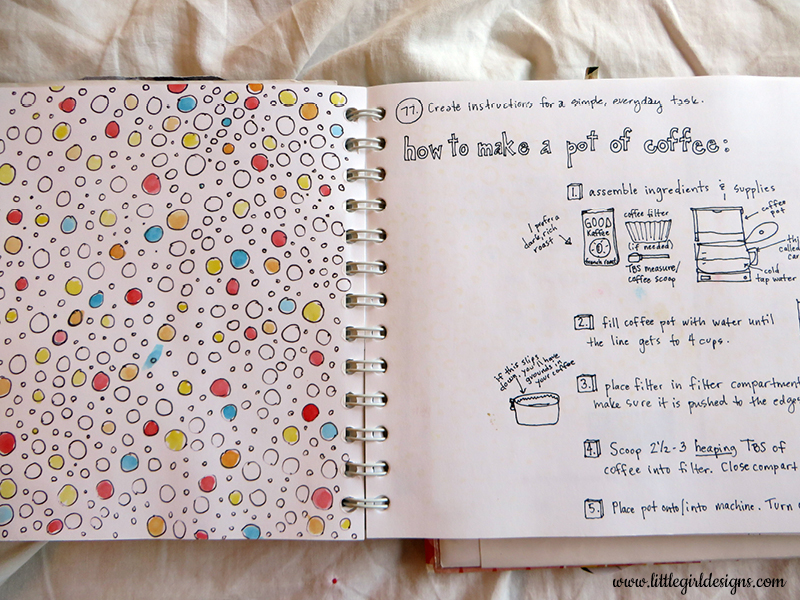 77. Create instructions for a simple, everyday task.
how to make a pot of coffee:
1. assemble ingredients & supplies
I prefer a
dark, rich
roast
GOOD
Kaffee
french roast
coffee filter
(if needed)
TBS measure/
coffee scoop
coffee
pot
cold
tap water
called
2. fill coffee pot with water until
the line gets to 4 cups.
If this slips
down, you'll have
grounds in
your coffee
3. place filter in filter compartment
make sure it is pushed to the edges
4. Scoop 2½-3 heaping TBS of
coffee into filter. Close compart
5. Place pot onto/into machine. Turn
www.littlegirldesigns.com